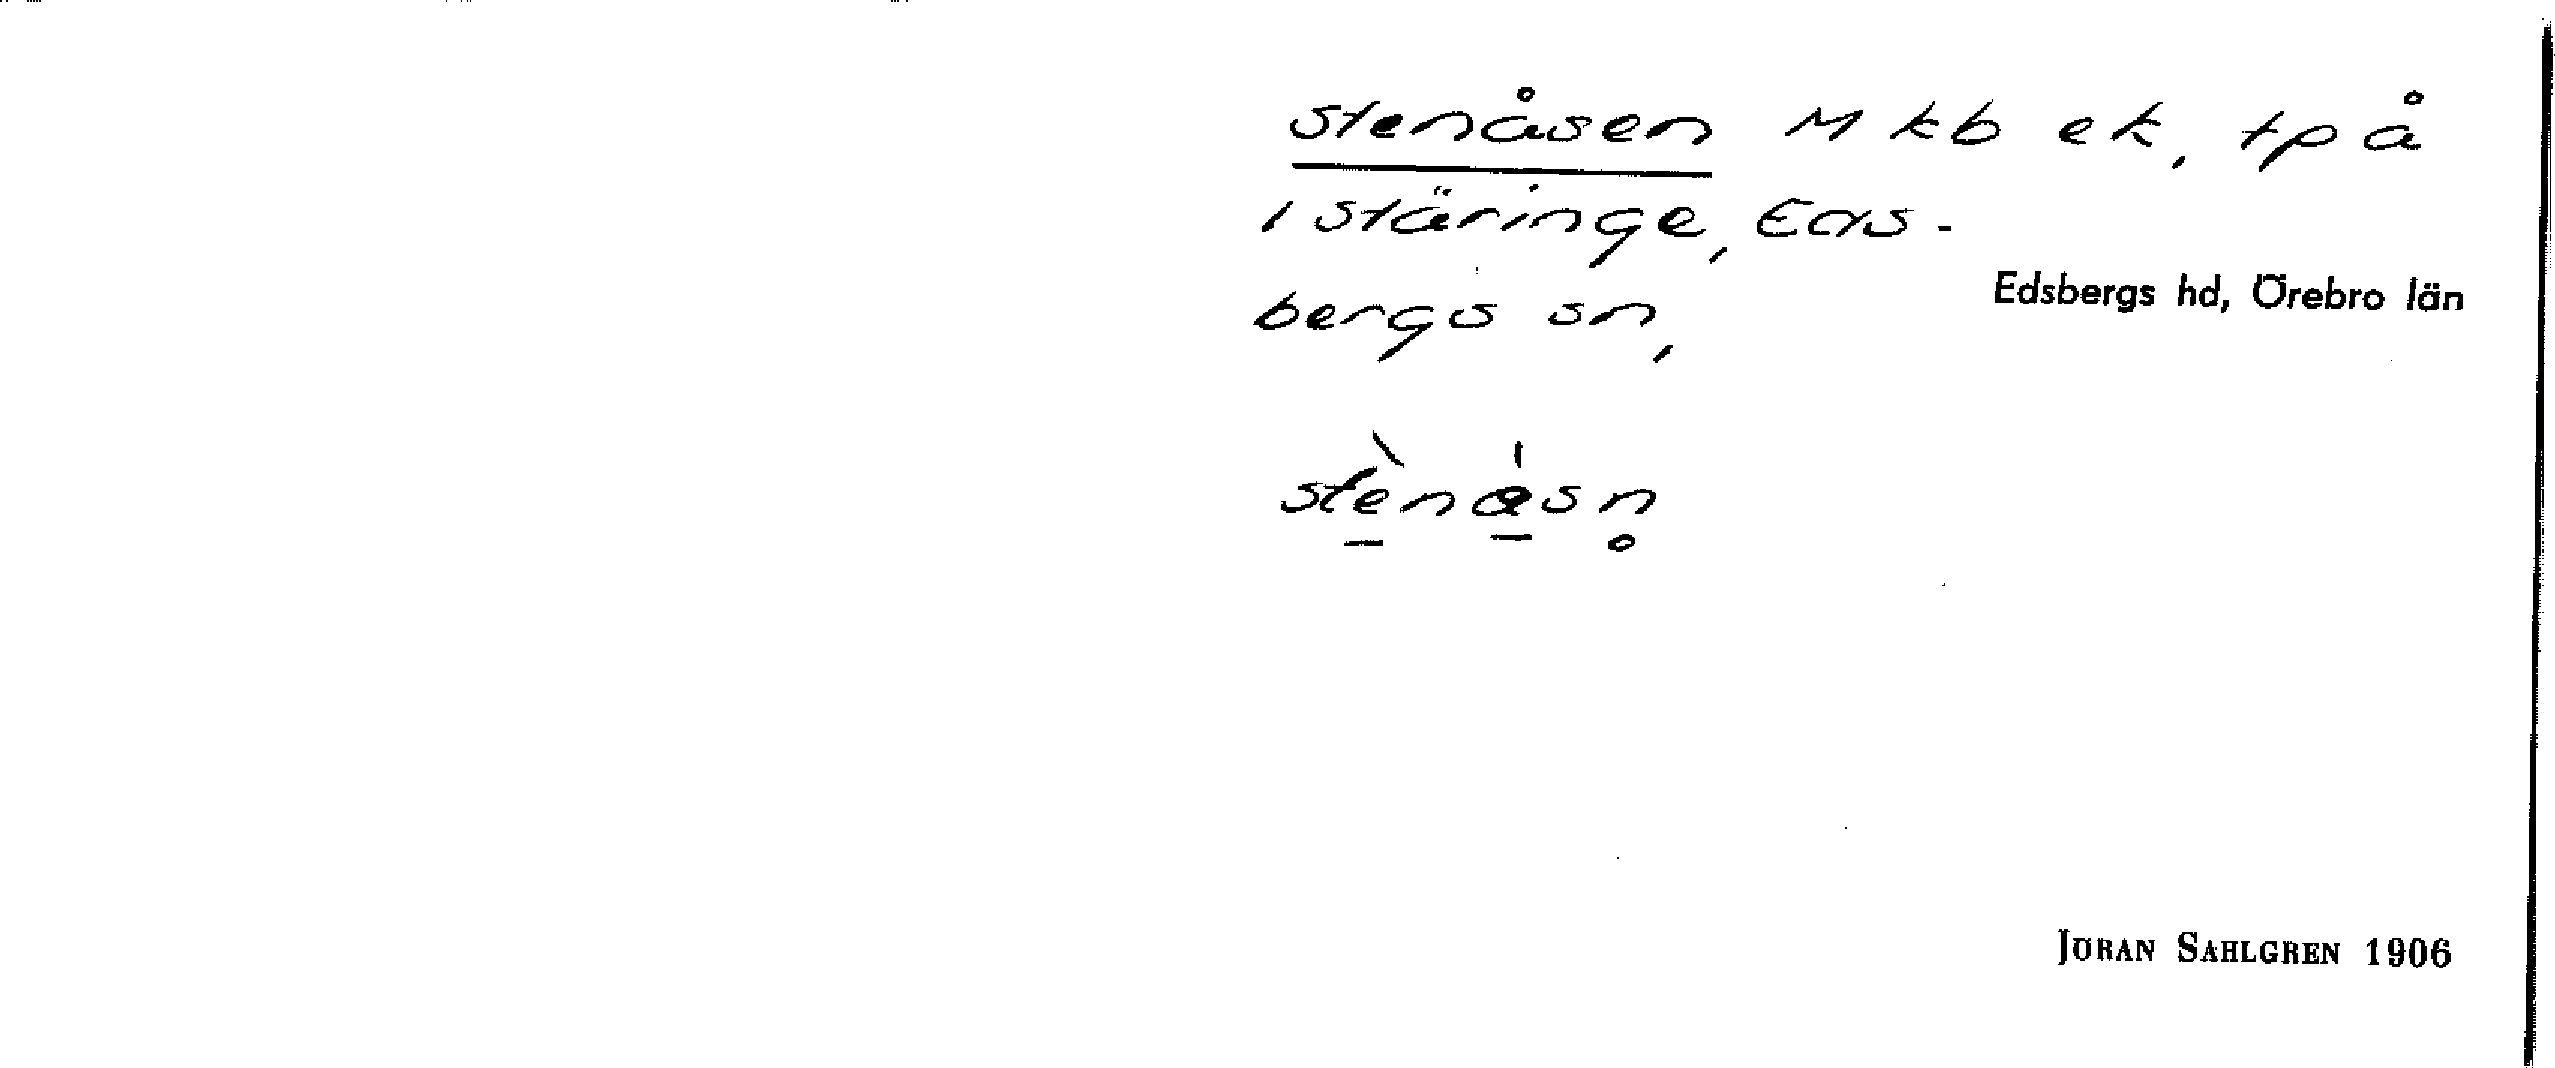 Stenåsen M kb ek, tp å
I Stäringe, Eds-
bergs sn,
Edsbergs hd, Örebro län
JÖRAN SAHLGREN 1906